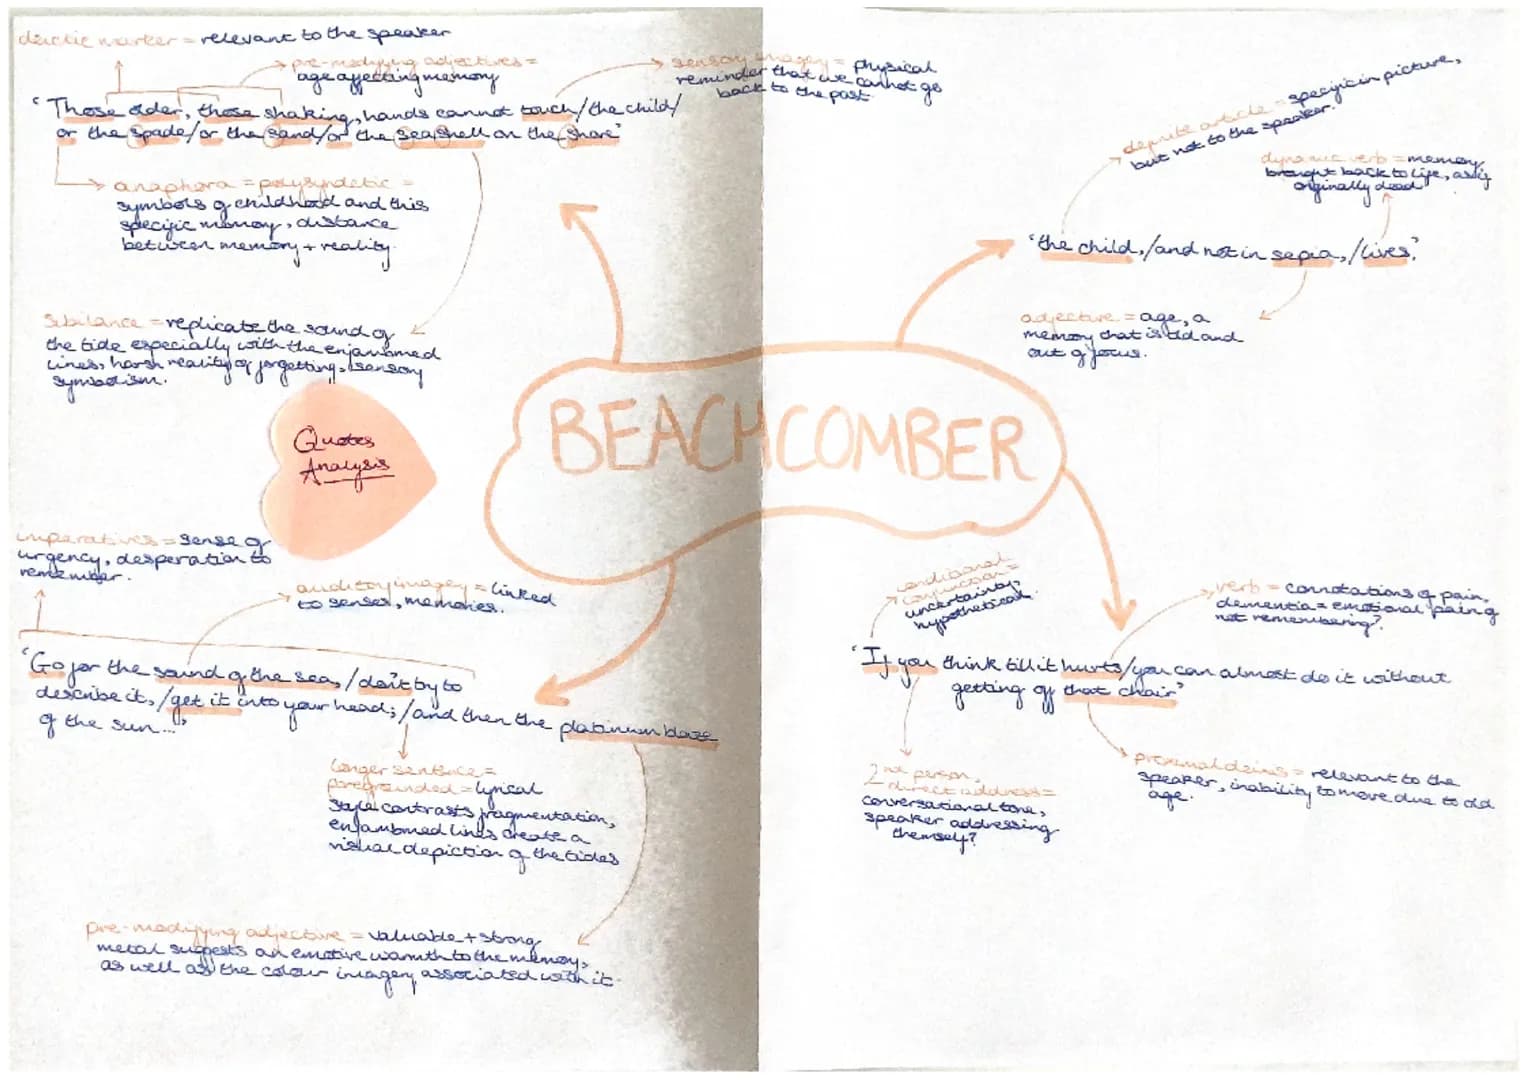 deictic marker = relevant to the speaker
pre-modifying adjectives =
age affecting memory
sensory imagery = physical
reminder that we cannot go
back to the past.
'Those older, those shaking, hands cannot touch/the child/
or the spade/or the sand/or the seashell on the shore'
anaphora = polysyndetic =
symbols of childhood and this
specific memory, distance
between memory + reality.
sibilance = replicate the sound of
the tide especially with the enjambed
lines, harsh reality of forgetting, sensory
symbolism.
Quotes
Analysis
BEACHCOMBER
definite article = specific in picture,
but not to the speaker.
dynamic verb = memory
brought back to life, as if
originally dead
'the child,/and not in sepia,/lives,'
adjective = age, a
memory that is old and
out of focus.
imperatives = sense of
urgency, desperation to
remember.
auditory imagery = linked
to senses, memories.
'Go for the sound of the sea,/don't try to
describe it,/get it into your head;/and then the platinum blaze
of the sun...'
longer sentence =
foregrounded = lyrical
style contrasts fragmentation,
enjambed lines create a
visual depiction of the tides
pre-modifying adjective = valuable + strong
metal suggests an emotive warmth to the memory,
as well as the colour imagery associated with it.
conditional
conjunction =
uncertainty,
hypothetical.
verb = connotations of pain,
dementia = emotional pain of
not remembering?
'If you think till it hurts/you can almost do it without
getting off that chair'
2nd person,
direct address =
conversational tone,
speaker addressing
themself?
proximal deixis = relevant to the
speaker, inability to move due to old
age.